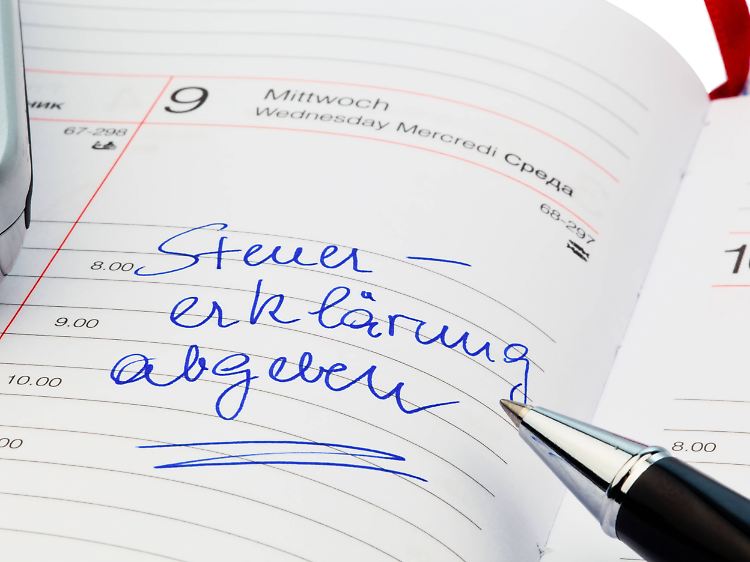 ник
67-298
9 Mittwoch
Wednesday Mercredi Среда
68-297
8.00 Steuer –
erklärung
9.00
abgeben
10.00
00
8.00